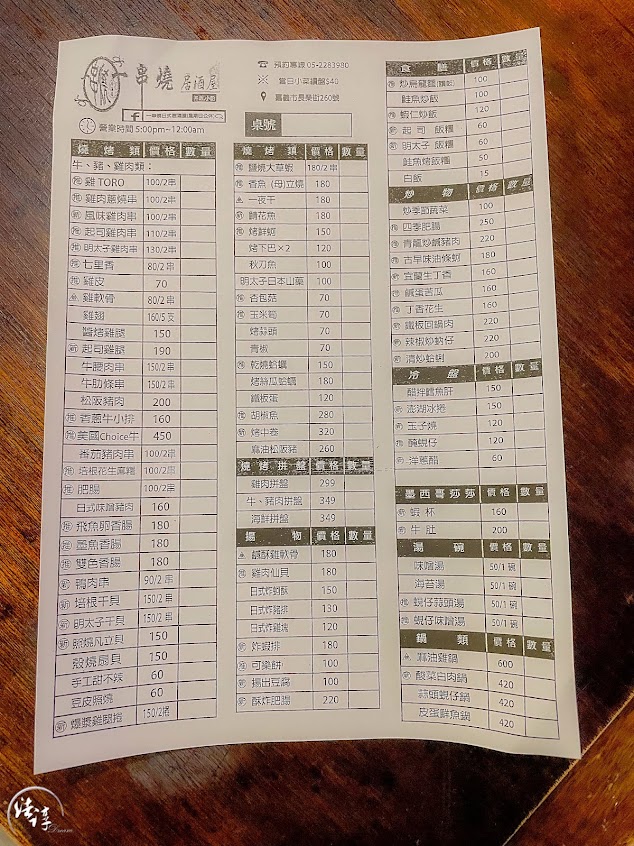 串燒 居酒屋
預約專線 05-2283980
當日小菜續盤$40
嘉義市長榮街260號
營業時間 5:00pm~12:00am
桌號
燒烤類 價格 數量
牛、豬、雞肉類:
推 雞TORO 100/2串
推 雞肉蔥燒串 100/2串
新 風味雞肉串 100/2串
推 起司雞肉串 110/2串
推 明太子雞肉串 130/2串
推 七里香 80/2串
推 雞皮 70
雞軟骨 80/2串
雞翅 160/5支
醬烤雞腿 150
新 起司雞腿 190
牛腰肉串 150/2串
牛肋條串 150/2串
松阪豬肉 200
推 香蔥牛小排 160
推 美國Choice牛 450
番茄豬肉串 100/2串
推 培根花生麻糬 100/2串
推 肥腸 100/2串
日式味噌豬肉 160
推 飛魚卵香腸 180
推 墨魚香腸 180
推 雙色香腸 180
新 鴨肉蒜 90/2串
新 培根干貝 150/2串
新 明太子干貝 150/2串
新 照燒帆立貝 150
殼燒扇貝 150
手工甜不辣 60
豆皮照燒 60
新 爆漿雞腿捲 150/2捲
燒烤類 價格 數量
推 鹽燒大草蝦 180/2串
推 香魚(母)立燒 180
一夜干 180
新 鯖花魚 180
推 烤鮮蚵 150
烤下巴×2 120
秋刀魚 100
明太子日本山藥 100
推 杏包菇 70
推 玉米筍 70
烤蒜頭 70
青椒 70
推 乾燒蛤蠣 150
烤絲瓜蛤蠣 180
鐵板蛋 120
推 胡椒魚 280
新 烤中卷 320
麻油松阪豬 260
燒烤拼盤 價格 數量
雞肉拼盤 299
牛、豬肉拼盤 349
海鮮拼盤 349
揚物 價格 數量
鹹酥雞軟骨 180
推 雞肉仙貝 180
日式炸蚵酥 150
日式炸豬排 130
日式炸雞塊 120
新 炸蝦排 180
推 可樂餅 100
新 揚出豆腐 100
新 酥炸肥腸 220
食膳 價格 數量
100
鮭魚炒飯 100
推 蝦仁炒飯 120
新 起司 飯糰 60
新 明太子 飯糰 60
鮭魚烤飯糰 50
白飯 15
炒物 價格 數量
炒季節蔬菜 100
推 四季肥腸 250
推 青龍炒鹹豬肉 220
推 古早味油條蚵 180
新 宜蘭生丁香 160
推 鹹蛋苦瓜 160
推 丁香花生 160
新 鐵板回鍋肉 220
新 辣椒炒蚋仔 220
新 清炒蛤蜊 200
冷盤 價格 數量
醋拌鱈魚肝 150
新 澎湖冰捲 150
推 玉子燒 120
推 醃蜆仔 120
新 洋蔥醋 60
墨西哥莎莎 價格 數量
新 蝦杯 160
新 牛肚 200
湯碗 價格 數量
味噌湯 50/1碗
海苔湯 50/1碗
推 蜆仔蒜頭湯 50/1碗
推 蜆仔味噌湯 50/1碗
鍋類 價格 數量
麻油雞鍋 600
推 酸菜白肉鍋 420
蒜頭蜆仔鍋 420
皮蛋鮮魚鍋 420
Dream